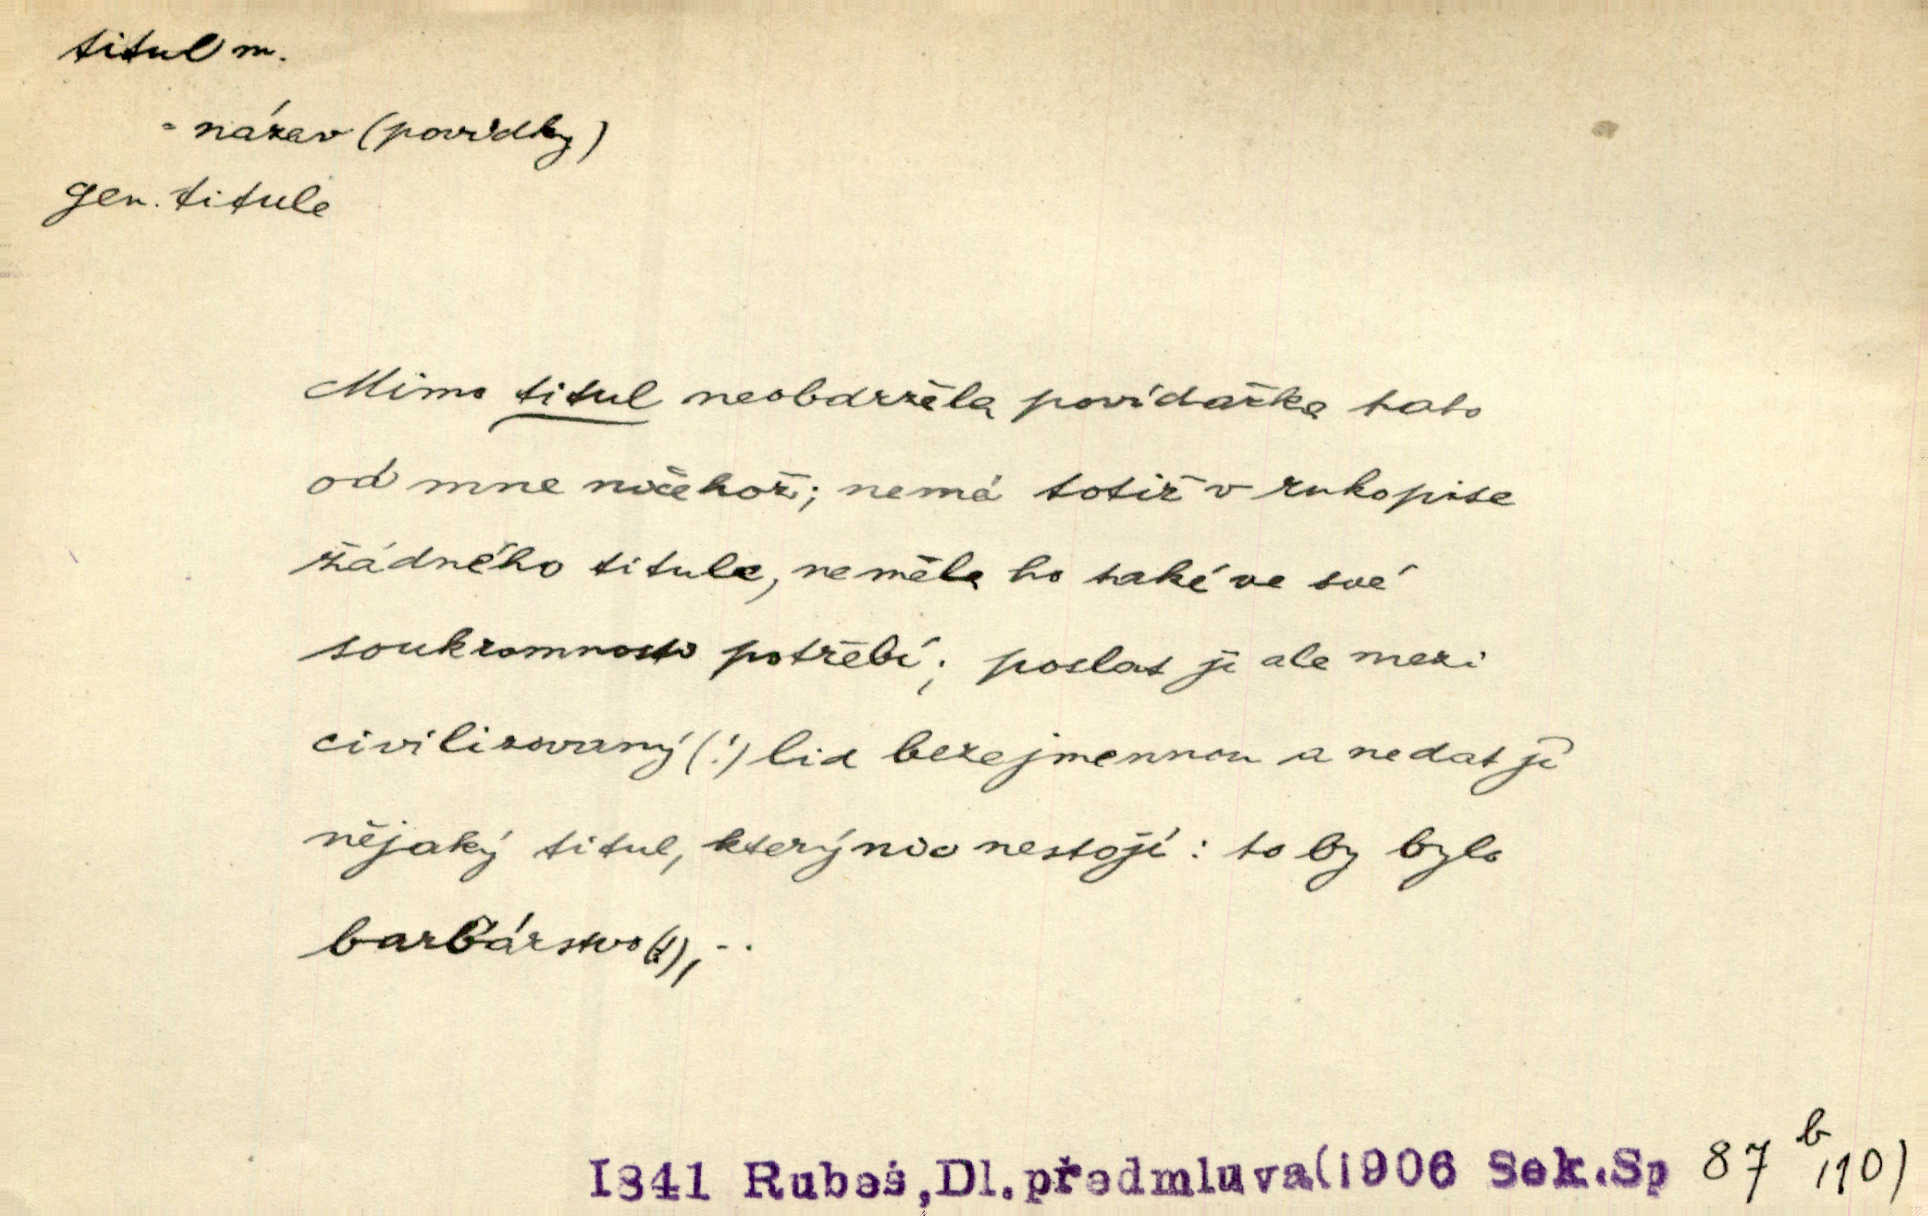 titul m.
= název (povídky)
gen. titule
Mimo titul neobdržela povídačka tato
od mne ničehož; nemá totiž v rukopise
žádného titule, neměla ho také ve své
soukromnosti potřebí; poslat ji ale mezi
civilizovaný (!) lid bezejmennou a nedat jí
nějaký titul, který nic nestojí: to by bylo
barbárstvo (!), ..
1841 Rubeš, Dl. předmluva (1906 Sek. Sp 87 b/10)